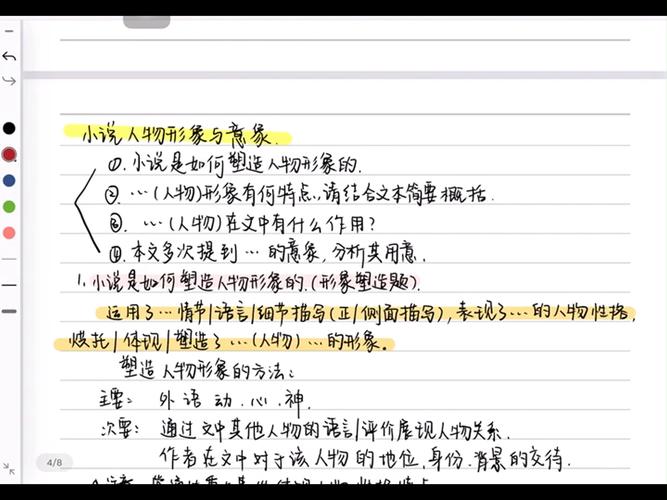 小说人物形象与意象.
①.小说是如何塑造人物形象的.
②.…(人物)形象有何特点,请结合文本简要概括.
③. …(人物)在文中有什么作用?
④.本文多次提到…的意象,分析其用意.
1.小说是如何塑造人物形象的.(形象塑造题).
运用了…情节|语言|细节描写(正|侧面描写),表现了…的人物性格,
烘托|体现|塑造了…(人物)…的形象。
塑造人物形象的方法:
主要: 外.语.动.心.神.
次要: 通过文中其他人物的语言|评价展现人物关系.
作者在文中对于该人物的地位.身份.背景的交待.
4/8